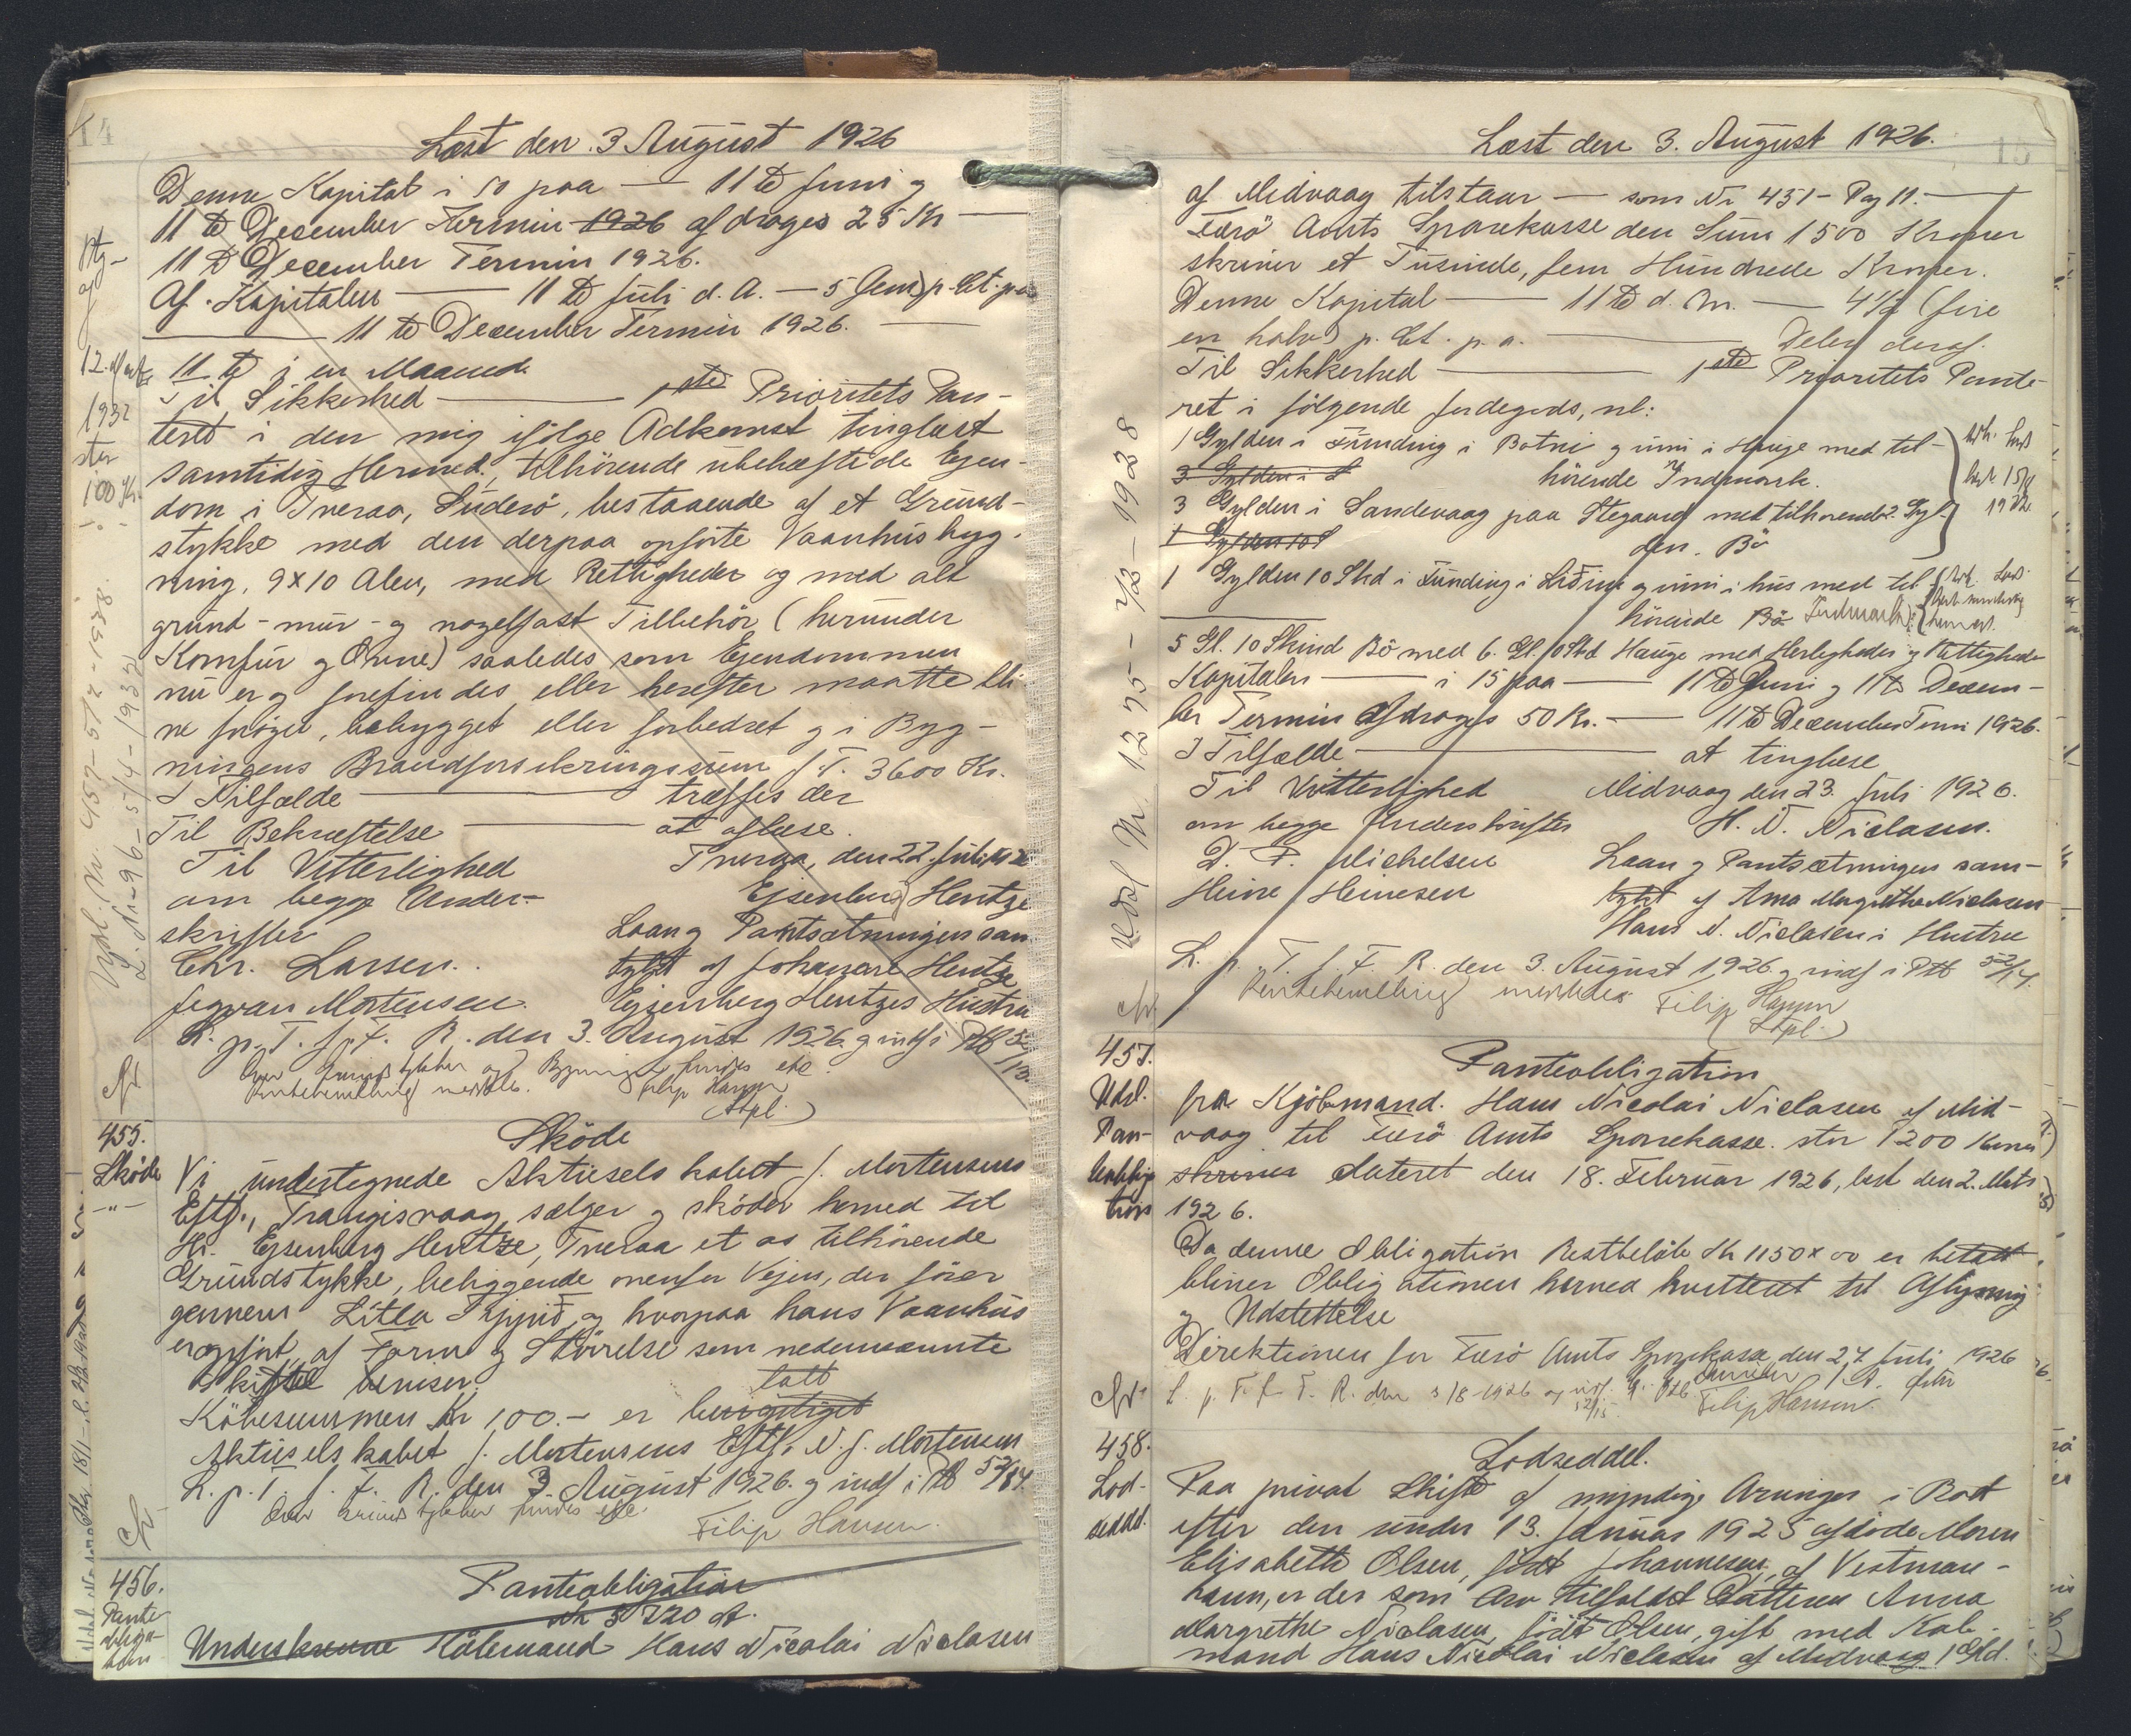 Læst den 3 August 1926
Denne Kapital i 50 paa — 11te Juni og
11te December Termin 1926 afdrages 25 Kr —
11te December Termin 1926.
Af Kapitalen — 11te Juli d. A. — 5 (fem) p. Ct. p.a.
— 11te December Termin 1926. —
11te i en Maaned.
Til Sikkerhed — 1ste Prioritets Pan-
teret i den mig ifølge Adkomst tinglæst
samtidig hermed, tilhörende übehæftede Ejen-
dom i Tveraa, Süderö, bestaaende af et Gründ-
stykke med den derpaa opførte Vaanhüsbyg-
ning, 9x10 Alen, med Rettigheder og med alt
gründ- mür- og nagelfast Tilbehör (heründer
Komfür og Ovne) saaledes som Ejendommen
nü er og forefindes eller herefter maatte bli
ve foröget, bebygget eller forbedret og i Byg-
ningens Brandforsikringssüm f. T. 3600 Kr.
I Tilfælde — træffes der
Til Bekræftelse — at aflæse.
Til Vitterlighed
om begge Under-
skrifter
Chr. Larsen.
Jegvan Mortensen.
Tveraa, den 22. Juli 1926
Ejsenberg Hentze
Laan og Pantsætningen sam-
tykt af Johanne Hentze
Ejsenberg Hentzes Hüstru
L. p. T. f. F. R. den 3. August 1926 og indf i Ptb 52/13.
Over Gründstykker og Bygninger findes ikke
Rentebemelding meddeles. Filip Hansen
(Stpl.)
12. Marts
1932
stor
100 Kr.
Udsl. Nr 457-5/2-1938.
L. Nr 96-5/4-1932
455.
Sködе
-"-
Sköde
Vi ündertegnede Aktieselskabet J. Mortensens
Eftf., Trangisvaag sælger og sköder herved til
Hr. Ejsenberg Hentze, Tveraa et os tilhörende
Gründstykke, beliggende ovenfor Vejen, der förer
gennem Litla Trygið og hvorpaa hans Vaanhüs
er opfört, af Form og Störrelse som nedennævnte
Skifte beviser.
talt
Köbesummen Kr 100.- er berigtiget
Aktieselskabet J. Mortensens Eftf. N. J. Mortensen
L. p. T. f. F. R. den 3. August 1926. og indf i Ptb 52/84.
Over Gründstykker findes ikke.
Filip Hansen.
456.
Pante-
obliga-
tion
Panteobligation
Underskrevne Köbmand Hans Nicolai Niclasen
Læst den 3. August 1926.
af Midvaag tilstaar — som Nr 451 - Pag 11. —
Færö Amts Sparekasse den Süm 1500 Kroner
skriver et Tüsinde, fem Hündrede Kroner.
Denne Kapital — 11te d. M. — 4½ (fire
en halv) p. Ct. p. a. — Delen deraf.
Til Sikkerhed — 1ste Prioritets Pante-
ret i fölgende Jordegods, nl:
1 Gylden i Fünding i Botni og inni i Haüge med til-
3 Gylden i S
hörende Indmark.
3 Gylden i Sandevaag paa Stegaard med tilhörende 2 Gyl-
den. Bö
1 Gylden 10 Skd i Fünding i Liðini og inni i hüs med til
hörende Bö Indmark
5 Gl. 10 Skind Bö med 6. Gl. 10 Skd Haüge med Herligheder og Rettigheder
Kapitalen — i 15 paa — 11te Juni og 11te Decem-
ber Termin afdrages 50 Kr. — 11te December Term 1926.
I Tilfælde — at tinglæse
Til Vitterlighed
om begge Underskrifter
D. P. Michelsen
Heine Heinesen
Midvaag den 23. Juli 1926.
H. N. Niclasen.
Laan og Pantsætningen sam-
tykt af Anna Margrethe Niclasen
Hans N. Niclasen i Hustru
L. p. T. f. F. R. den 3. August 1926 og indf i Ptb 52/14.
Rentebemelding meddeles Filip Hansen
(Stpl.)
Udsl Nr. 1235-7/2-1928
457.
Udsl.
Pan-
teoblig-
tion
Panteobligation
fra Kjöbmand. Hans Nicolai Niclasen af Mid-
vaag til Færö Amts Sparekasse. stor 1200 Kroner
skriver dateret den 18. Februar 1926, læst den 2. Marts
1926.
Da denne Obligation Restbelöb Kr 1150x00 er betalt
bliver Obligationen herved kvitteret til Aflysning
og Udslettelse
Direktionen for Færö Amts Sparekasse, den 27. Juli 1926
L. p. T. f. F. R. den 3/8-1926 og indf. i Ptb 52/15. Filip Hansen.
458.
Lod-
seddel.
Lodseddel.
Paa privat Skifte af myndige Arvinger i Boet
efter den ünder 13. Januar 1925 afdöde Maren
Elisabeth Olsen, födt Johannesen, af Vestman-
havn, er der som Arv tilfaldet Datteren Anna
Margrethe Niclasen, födt Olsen, gift med Köb-
mand Hans Nicolai Niclasen af Midvaag 1 Gyld.